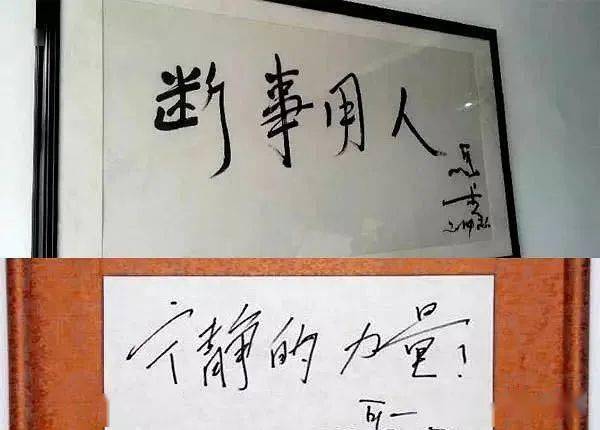 断事用人
宁静的力量!